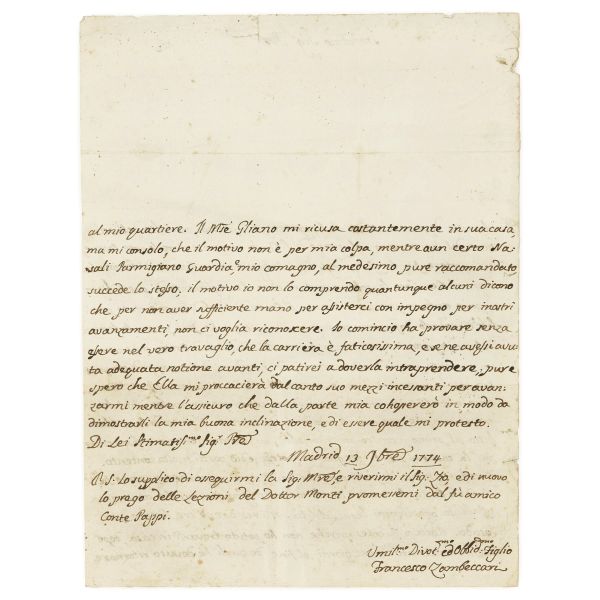 al mio quartiere. Il Mse Gliano mi ricusa costantemente in sua casa,
ma mi consolo, che il motivo non è per mia colpa, mentre a un certo Na=
sali Parmigiano Guardia e mio comagno, al medesimo pure raccomandato
succede lo stesso, il motivo io non lo comprendo quantunque alcuni dicono
che per non aver sufficiente mano per assisterci con impegno per i nostri
avanzamenti, non ci voglia riconoscere. Io comincio ha provare senza
essere nel vero travaglio, che la carriera è faticosissima, e se ne avessi avu=
ta adequata notione avanti, ci patirei a doverla intraprendere, pure
spero che Ella mi procaccierà dal canto suo mezzi incesanti per avan=
zarmi mentre l'assicuro che dalla parte mia
dimostrarli la mia buona inclinazione, e di essere quale mi protesto.
Di Lei Stimatiss.mo Sig.r Pre
Madrid 13 9bre 1774
P.S. Lo supplico di asseguirmi la Sig.ra Mre, e riverirmi il Sig. Zio, e di nuovo
lo prego delle Lezioni del Dottor Monti promessemi dal fù amico
Conte Pappi.
Umil.mo Divot.mo ed Obbid.mo Figlio
Francesco Zambeccari